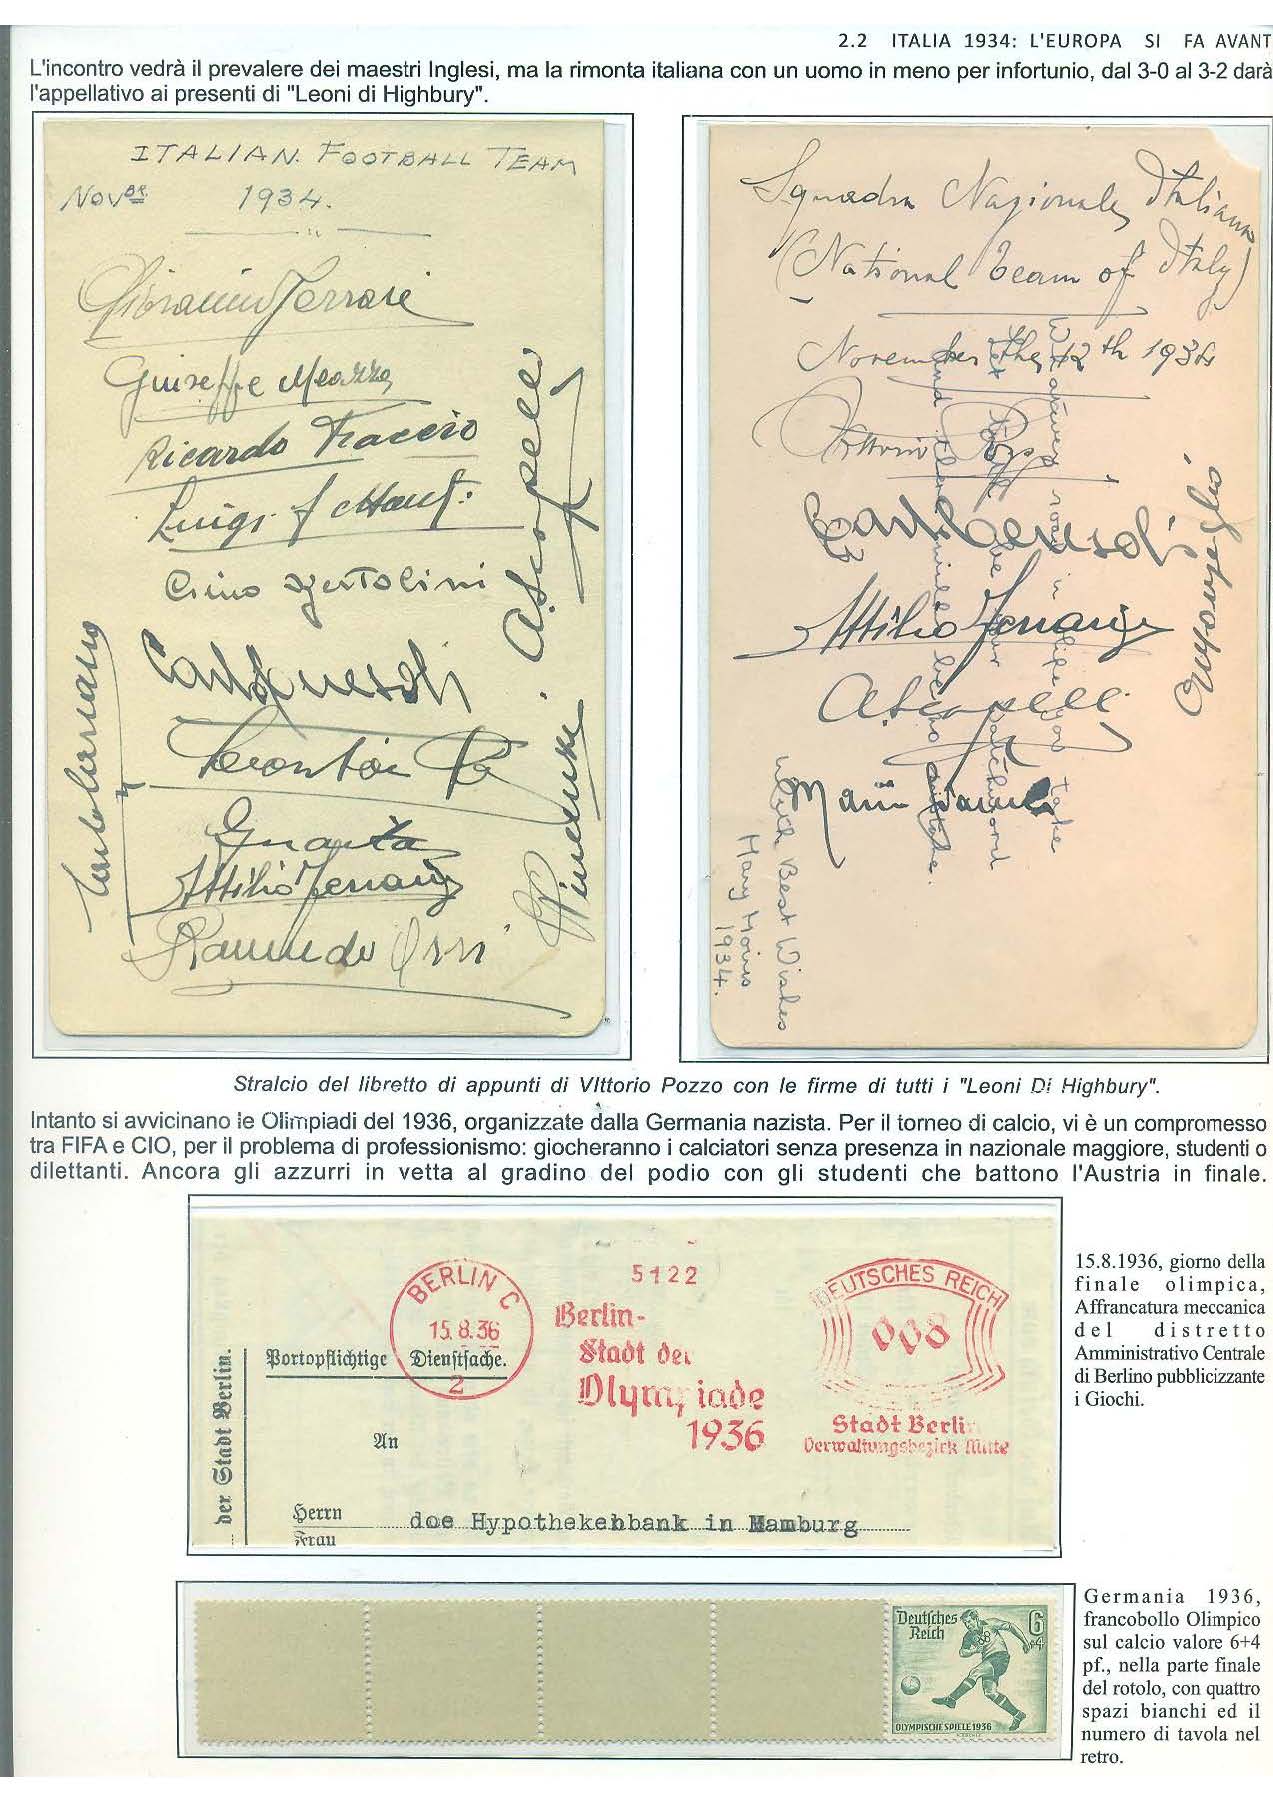 2.2 ITALIA 1934: L'EUROPA SI FA AVANT
L'incontro vedrà il prevalere dei maestri Inglesi, ma la rimonta italiana con un uomo in meno per infortunio, dal 3-0 al 3-2 darà
l'appellativo ai presenti di "Leoni di Highbury".
ITALIAN. FOOTBALL TEAM
Novbr 1934.
Giovanni Ferrari
Guiseffe Meazza
Ricardo Faccio
Luigi
Gino Bertolini
Guaita
Attilio Ferraris
Raimundo Orsi
A. Scopelli
Squadra Nazionale Italiana
(National team of Italy)
November the 12th 1934
Vittorio Pozzo
Attilio Ferraris
A. Scopelli
Mario
Whatever road in life you take
and there will be no mistake.
With Best Wishes
Mary
1934.
Stralcio del libretto di appunti di VIttorio Pozzo con le firme di tutti i "Leoni Di Highbury".
Intanto si avvicinano le Olimpiadi del 1936, organizzate dalla Germania nazista. Per il torneo di calcio, vi è un compromesso
tra FIFA e CIO, per il problema di professionismo: giocheranno i calciatori senza presenza in nazionale maggiore, studenti o
dilettanti. Ancora gli azzurri in vetta al gradino del podio con gli studenti che battono l'Austria in finale.
der Stadt Berlin.
Portopflichtige Dienstsache.
BERLIN C
15.8.36
2
5122
Berlin-
Stadt der
Olympiade
1936
DEUTSCHES REICH
008
Stadt Berlin
Verwaltungsbezirk Mitte
An
Herrn
Frau
doe Hypothekenbank in Hamburg
15.8.1936, giorno della
finale olimpica,
Affrancatura meccanica
del distretto
Amministrativo Centrale
di Berlino pubblicizzante
i Giochi.
Deutsches
Reich
6
+4
OLYMPISCHE SPIELE 1936
Germania 1936,
francobollo Olimpico
sul calcio valore 6+4
pf., nella parte finale
del rotolo, con quattro
spazi bianchi ed il
numero di tavola nel
retro.